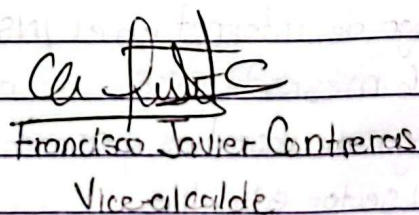 Francisco Javier Contreras
Vice-alcalde